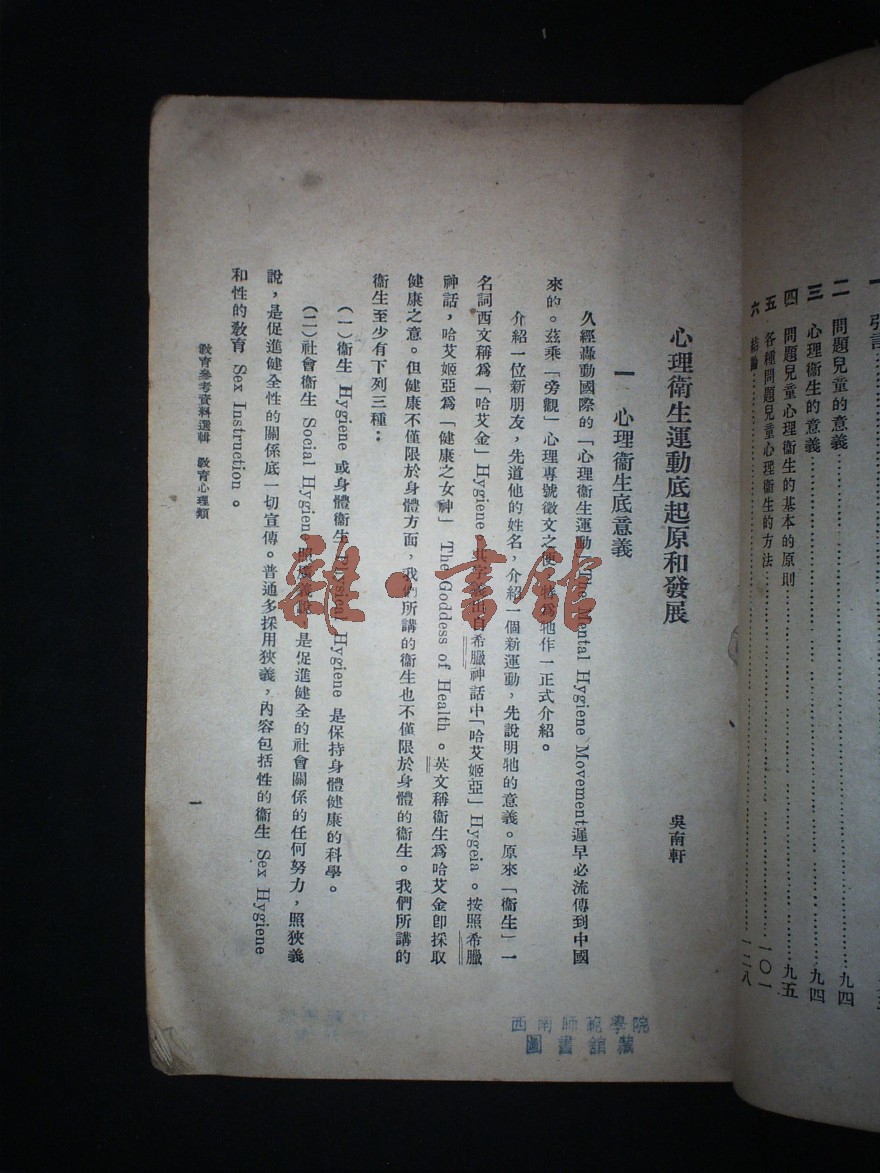 心理衛生運動底起原和發展
吳南軒
一 心理衞生底意義
久經轟動國際的「心理衞生運動」The Mental Hygiene Movement遲早必流傳到中國
來的。茲乘「旁觀」心理專號徵文之便,特爲牠作一正式介紹。
介紹一位新朋友,先道他的姓名,介紹一個新運動,先說明牠的意義。原來「衞生」一
名詞西文稱爲「哈艾金」Hygiene。其字義出自希臘神話中「哈艾姬亞」Hygeia。按照希臘
神話,哈艾姬亞爲「健康之女神」The Goddess of Health。英文稱衞生爲哈艾金卽採取
健康之意。但健康不僅限於身體方面,我們所講的衞生也不僅限於身體的衞生。我們所講的
衞生至少有下列三種:
(一)衞生 Hygiene 或身體衞生 Physical Hygiene 是保持身體健康的科學。
(二)社會衞生 Social Hygiene 照廣義說,是促進健全的社會關係的任何努力,照狹義
說,是促進健全性的關係底一切宣傳。普通多採用狹義,內容包括性的衞生 Sex Hygiene
和性的敎育 Sex Instruction。
敎育參考資料選輯 敎育心理類
一
西南師範學院
圖書館藏
雜·書館
一 引言
二 問題兒童的意義……九四
三 心理衞生的意義……九四
四 問題兒童心理衞生的基本的原則……九五
五 各種問題兒童心理衞生的方法……一〇一
六 結論……一二八